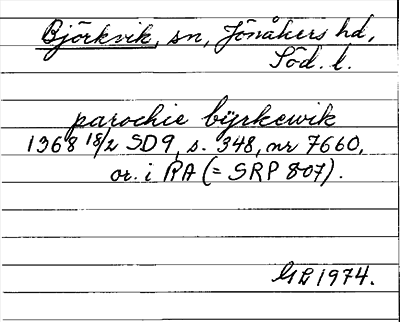 Björkvik, sn, Jönåkers hd,
Söd. l.
parochie byrkewik
1368 18/2 SD9, s. 348, nr 7660,
or. i RA (= SRP 807).
GL 1974.